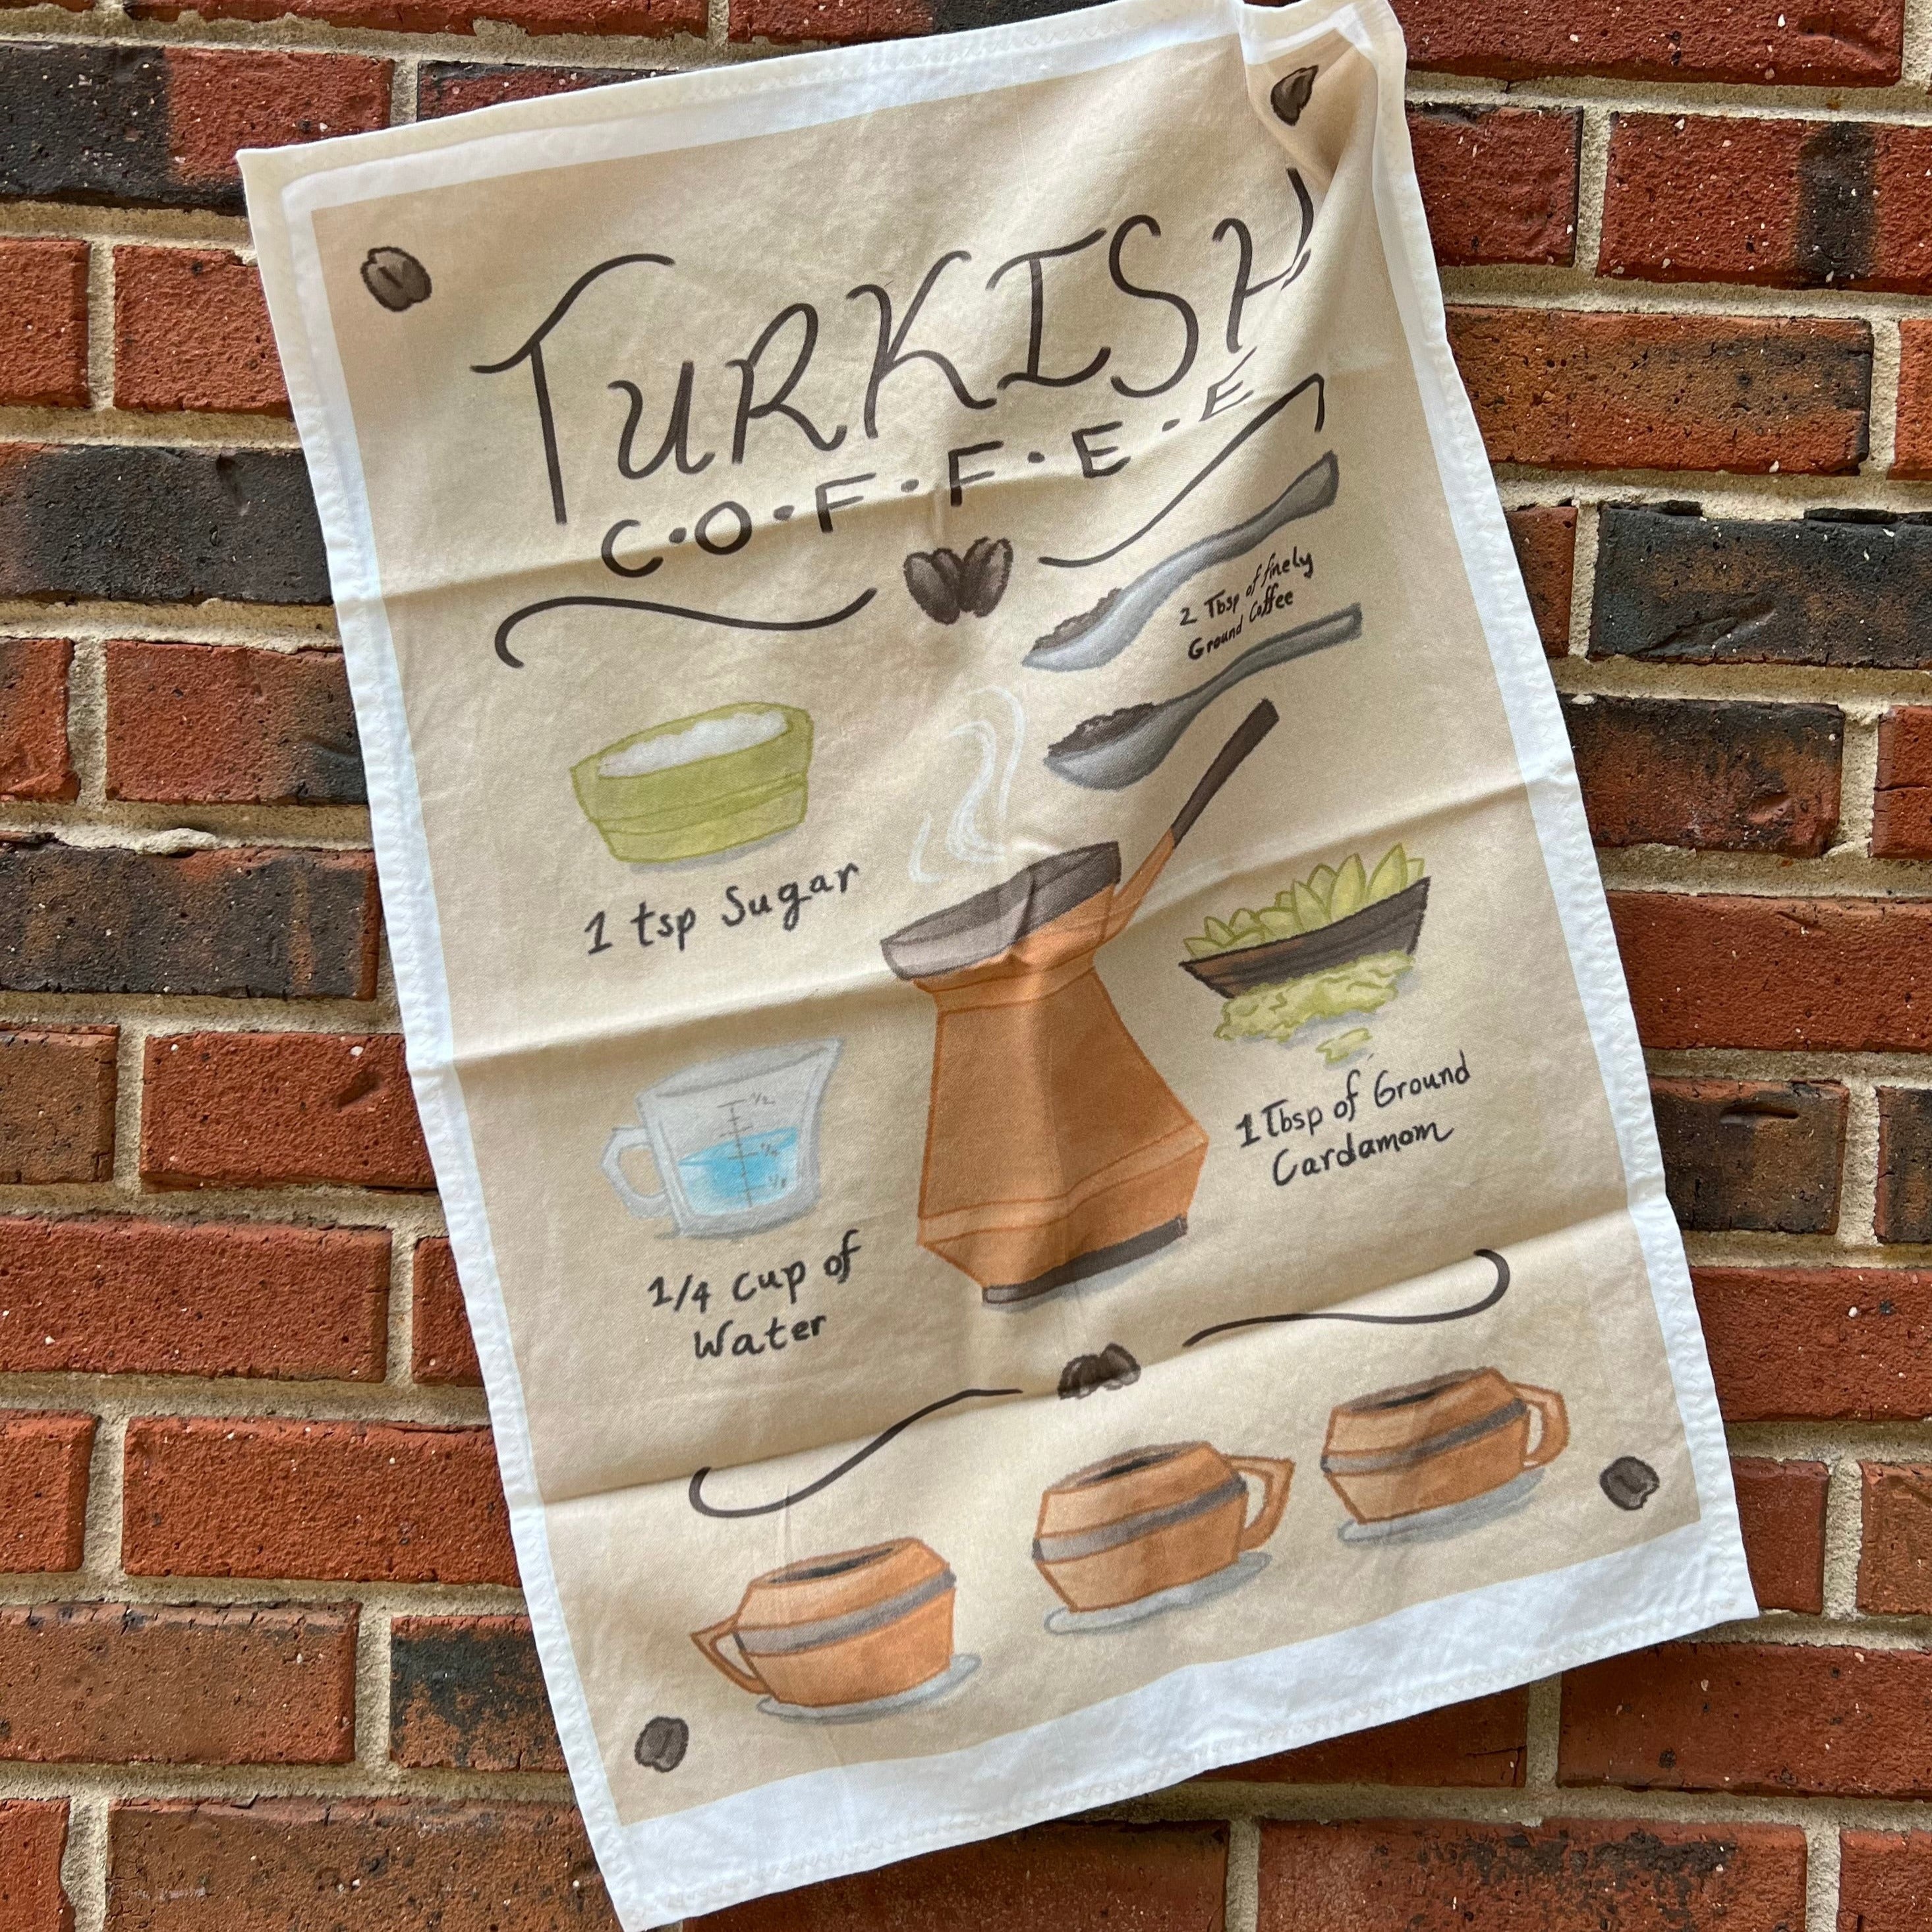 TURKISH
C·O·F·F·E·E
2 Tbsp of finely
Ground Coffee
1 tsp Sugar
1 Tbsp of Ground
Cardamom
1/2
1/4
1/8
1/4 cup of
Water